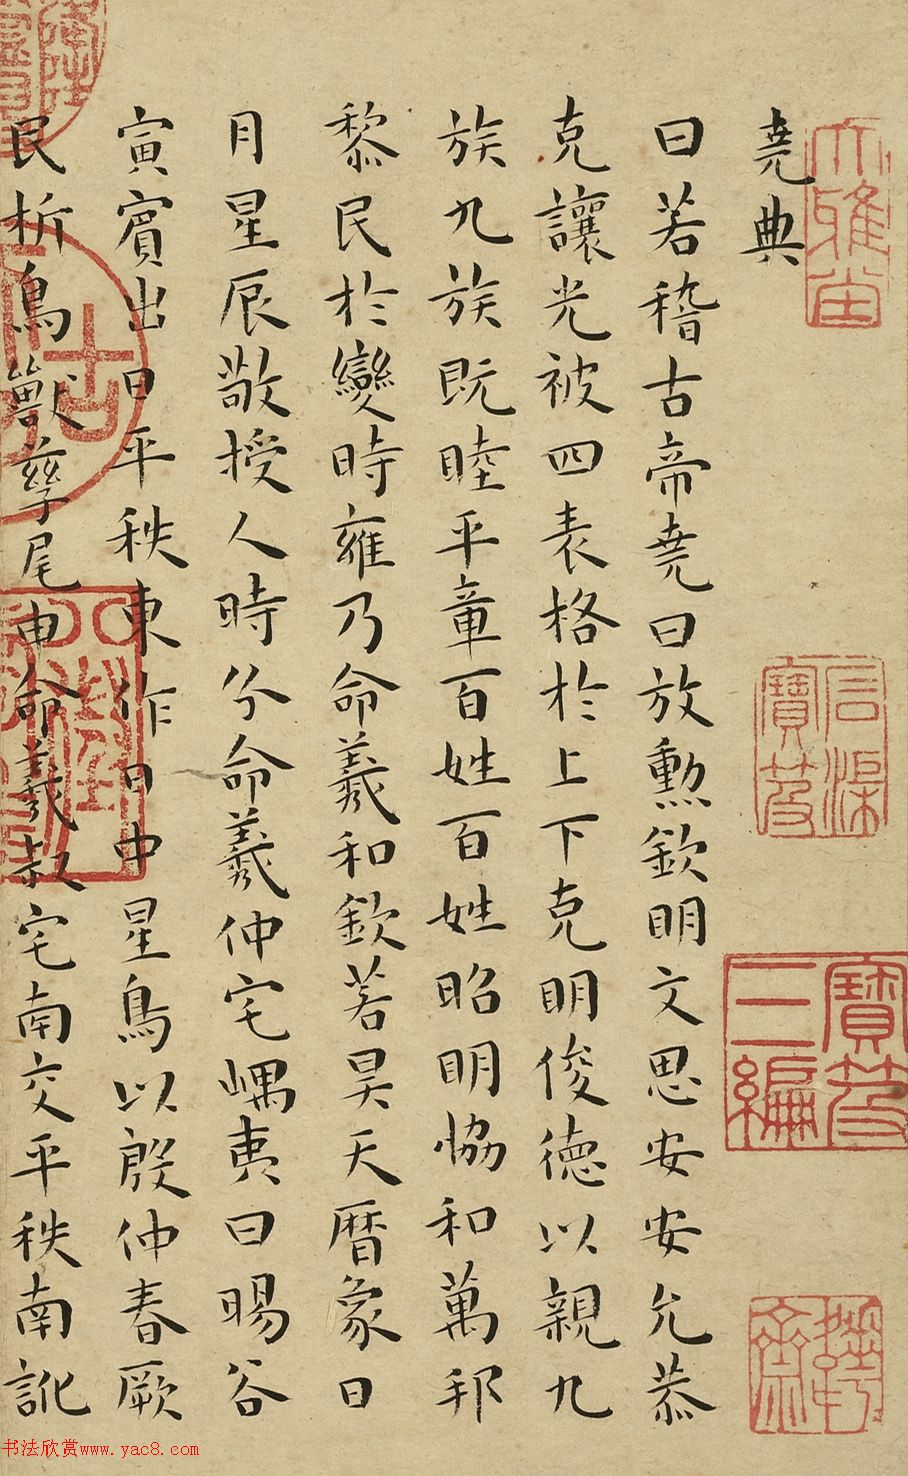 堯典
曰若稽古帝堯曰放勳欽明文思安安允恭
克讓光被四表格於上下克明俊德以親九
族九族既睦平章百姓百姓昭明恊和萬邦
黎民於變時雍乃命羲和欽若昊天暦象日
月星辰敬授人時分命羲仲宅嵎夷曰暘谷
寅賓出日平秩東作日中星鳥以殷仲春厥
民析鳥獸孳尾申命羲叔宅南交平秩南訛
石渠寶笈
寶笈三編
书法欣赏www.yac8.com